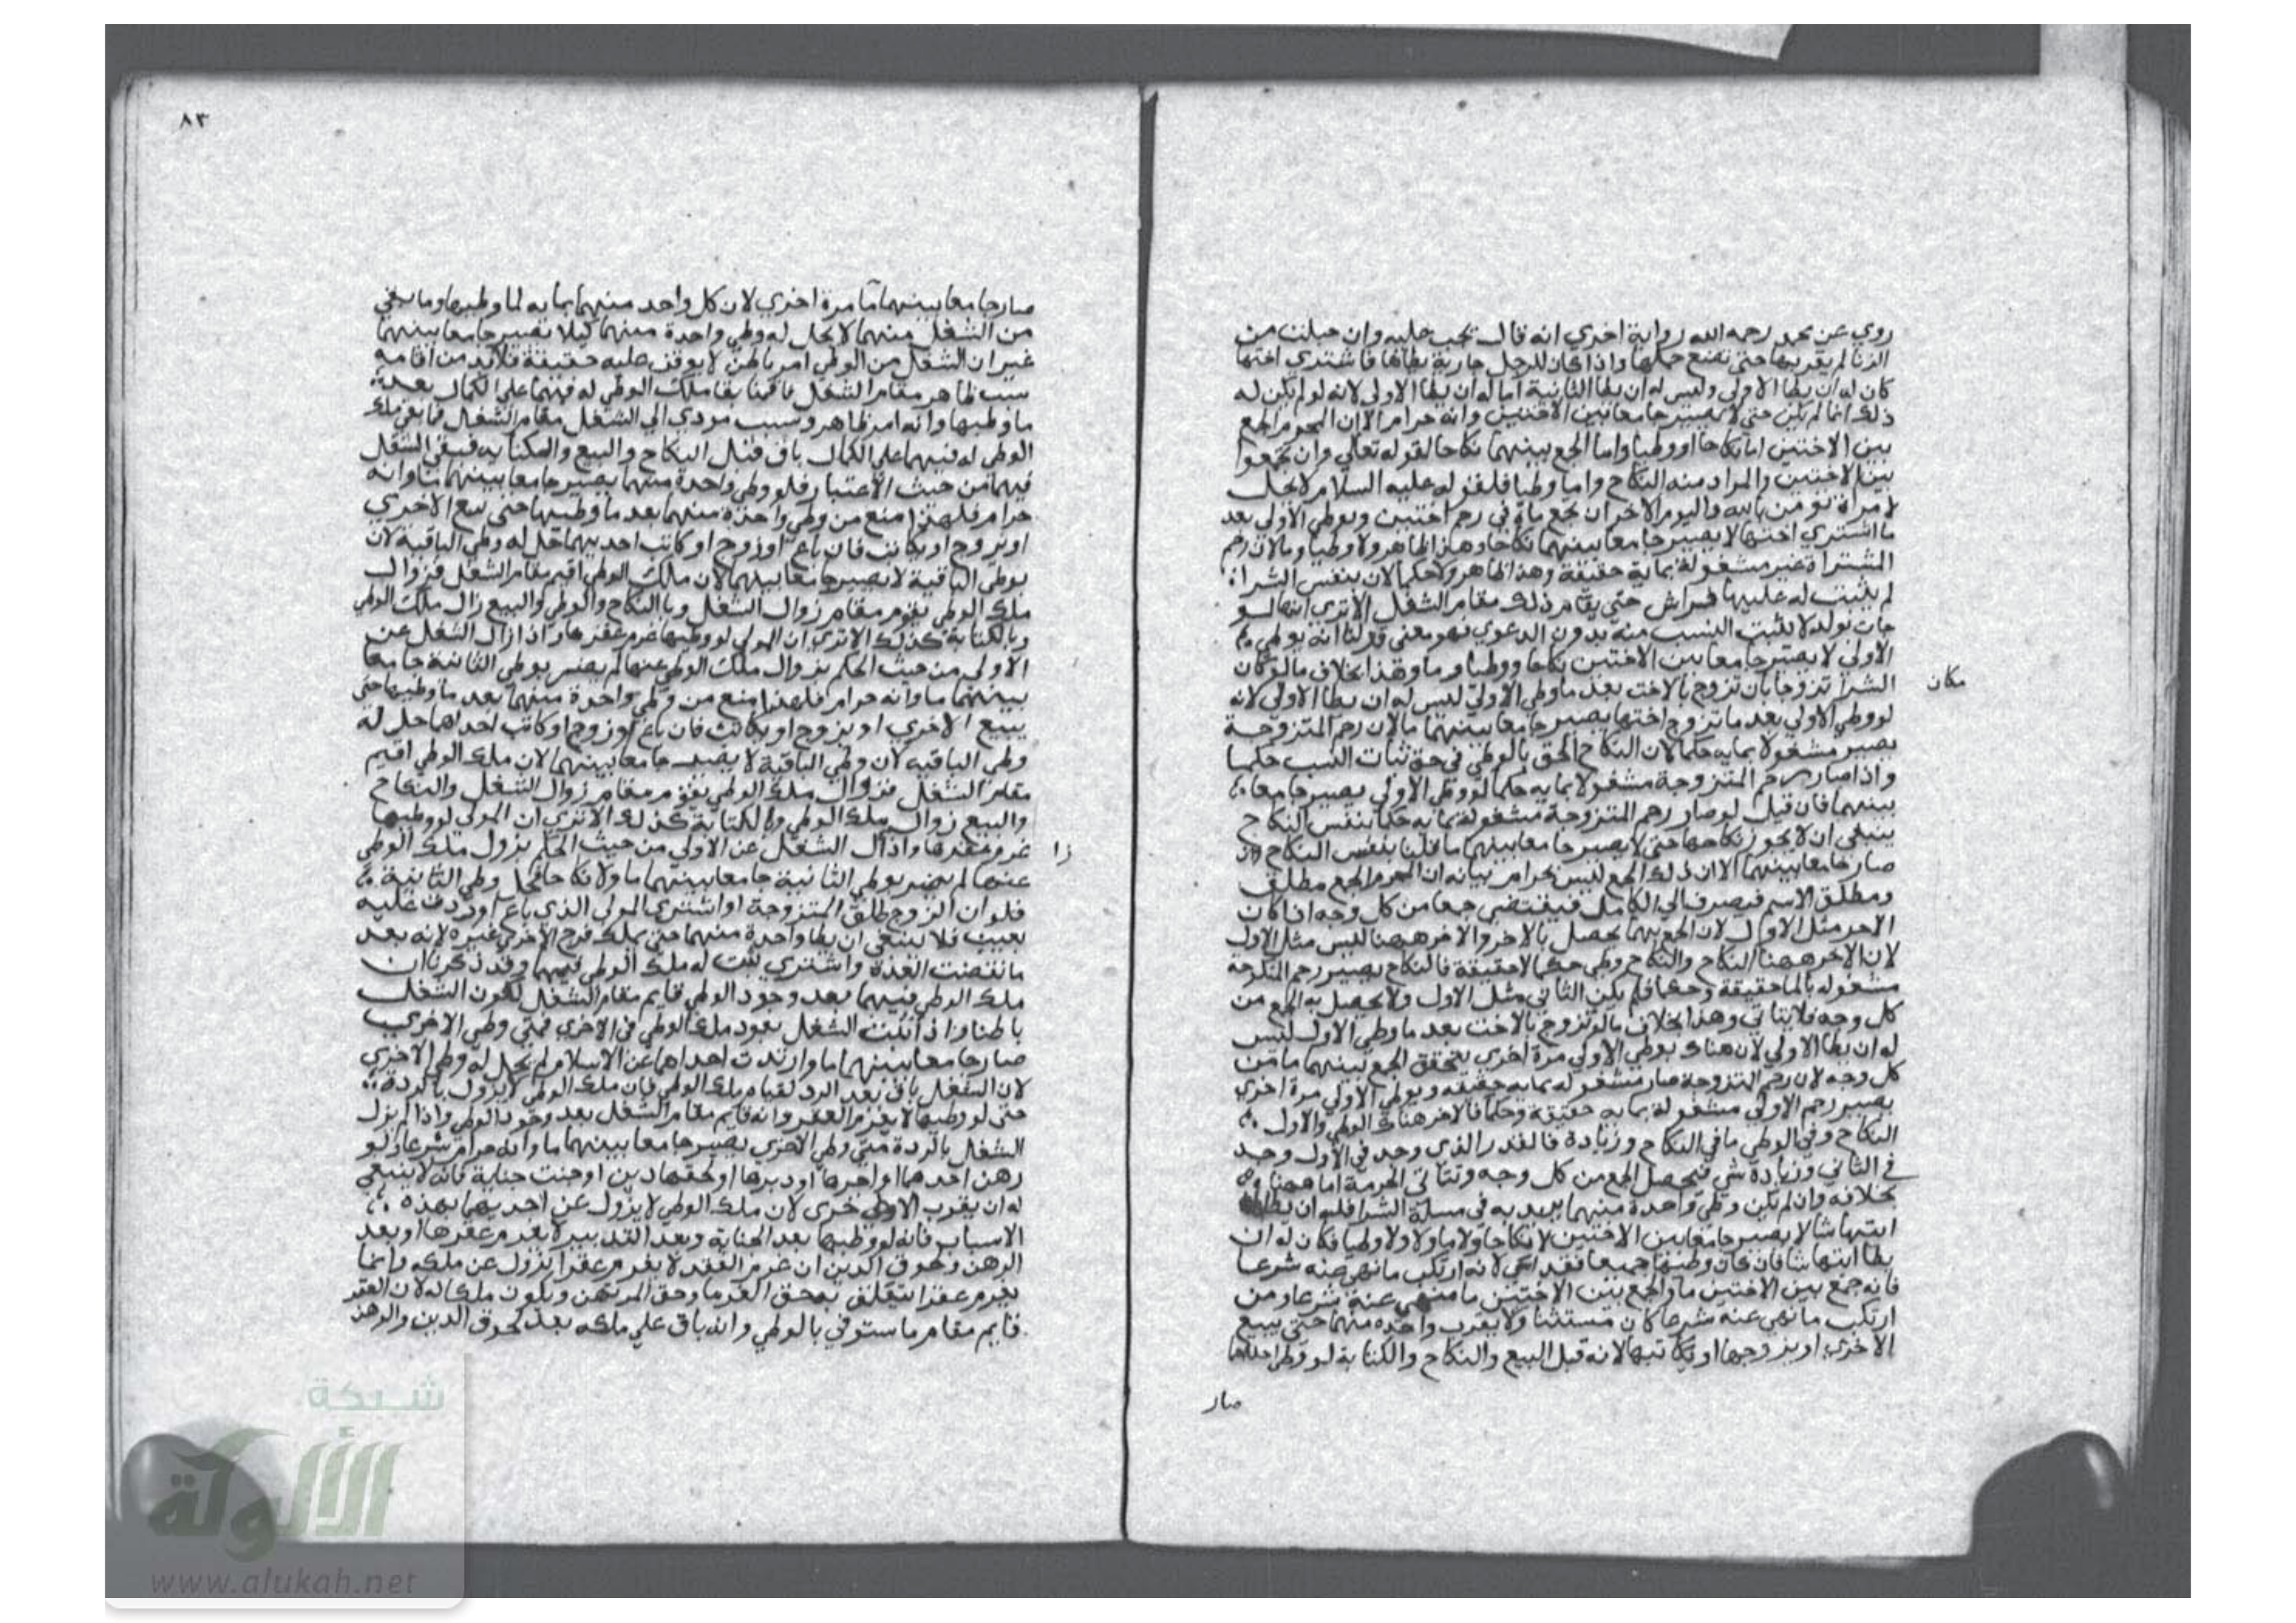 روي عن محمد رحمه الله رواية اخري انه قال تجب عليه وان حبلت من
الزنا لم يقربها حتى تضع حملها واذا كان للرجل جارية يطاها فاشتري اختها
كان له ان يطا الاولي وليس له ان يطا الثانية اما له ان يطا الاولي لانه لو لم يكن له
ذلك انما لم يكن حتى لا يصير جامعا بين الاختين وانه حرام الا ان المحرم الجمع
بين الاختين اما نكاحا او وطيا واما الجمع بينهما نكاحا لقوله تعالي وان تجمعوا
بين الاختين والمراد منه النكاح واما وطيا فلقوله عليه السلام لا يحل
لامراة تومن بالله واليوم الاخر ان تجمع ماه في رحم اختين وبوطي الاولي بعد
ما اشتري اختها لا يصير جامعا بينهما نكاحا وهذا ظاهر ولا وطيا وما لان رحم
المشتراة غير مشغولة بمايه حقيقة وهذا ظاهر ولا حكما لان بنفس الشرا
لم يثبت له عليها فراش حتى يقام ذلك مقام الشغل الا تري انها لو
جات بولد لا يثبت النسب منه بدون الدعوي فهو معنى قولنا انه بوطي
الاولي لا يصير جامعا بين الاختين نكاحا ووطيا وما وهذا بخلاف ما لو كان
مكان
الشرا تزوجا بان تزوج بالاخت بعد ما وطي الاولي ليس له ان يطا الاولي لانه
لو وطي الاولي بعد ما تزوج اختها يصير جامعا بينهما ما لان رحم المتزوجة
يصير مشغولا بمايه حكما لان النكاح الحق بالوطي في حق ثبات النسب حكما
واذا صار رحم المتزوجة مشغولا بمايه حكما لو وطي الاولي يصير جامعا
بينهما فان قيل لو صار رحم المتزوجة مشغولة بمايه حكما بنفس النكاح
ينبغي ان لا يجوز نكاحها حتى لا يصير جامعا بينهما ما قلنا بنفس النكاح وان
صار جامعا بينهما الا ان ذلك الجمع ليس بحرام بيانه ان المحرم الجمع مطلق
ومطلق الاسم فيصرف الي الكامل فيقتضي جمعا من كل وجه اذا كان
الاخر مثل الاول لان الجمع بهما يحصل بالاخر والاخر ههنا ليس مثل الاول
لان الاخر ههنا النكاح والنكاح وطي حكما لا حقيقة فالنكاح يصير رحم المنكوحة
مشغوله بالما حقيقة وحكما فلم يكن الثاني مثل الاول ولا يحصل به الجمع من
كل وجه فلا يتاتي وهذا بخلاف ما لو تزوج بالاخت بعد ما وطي الاول ليس
له ان يطا الاولي لان هناك بوطي الاولي مرة اخري يتحقق الجمع بينهما ما من
كل وجه لان رحم المتزوجة صار مشغوله بمايه حقيقه وبوطي الاولي مرة اخري
يصير رحم الاولي مشغولة بمايه حقيقة وحكما فالاخر هناك الوطي والاول
النكاح وفي الوطي ما في النكاح وزيادة فالقدر الذي وجد في الاول وجد
في الثاني وزيادة شي فيحصل الجمع من كل وجه وتتاتي الحرمة اما ههنا
بخلافه وان لم يكن وطي واحدة منهما يريد به في مسلة الشرا فله ان يطا
ايتهما شا لا يصير جامعا بين الاختين لا نكاحا ولا ما ولا وطيا فكان له ان
يطا ايتهما شا فان كان وطيهما جميعا فقد اسي لانه ارتكب ما نهي عنه شرعا
فانه جمع بين الاختين ما والجمع بين الاختين ما منهي عنه شرعا ومن
ارتكب ما نهي عنه شرعا كان مسيئا ولا يقرب واحده منهما حتى يبيع
الاخري او يزوجها او يكاتبها لانه قبل البيع والنكاح والكتابة لو وطي احداهما
صار
٨٣
صار جامعا بينهما ما مرة اخري لان كل واحد منهما بمايه لما وطيها وما بقي
من الشغل منهما لا يحل له وطي واحدة منهما كيلا تصير جامعا بينهما
غير ان الشغل من الوطي امر باطن لا يوقف عليه حقيقة فلابد من اقامة
سبب ظاهر مقام الشغل فاقمنا بقا ملك الوطي له فيهما علي الكمال بعد
ما وطيها وانه امر ظاهر وسبب مودي الي الشغل مقام الشغل فما بقي ملك
الوطي له فيهما علي الكمال باق فقبل النكاح والبيع والمكتابه فيبقي الشغل
فيهما من حيث الاعتبار فلو وطي واحدة منهما يصير جامعا بينهما ما وانه
حرام فلهذا منع من وطي واحدة منهما بعد ما وطيها حتى يبيع الاخري
او يزوج او يكاتب فان باع او زوج او كاتب احديهما حل له وطي الباقية لان
بوطي الباقية لا يصير جامعا بينهما لان ملك الوطي اقيم مقام الشغل فزوال
ملك الوطي يقوم مقام زوال الشغل وبالنكاح والوطي والبيع زال ملك الوطي
وبالكتابة كذلك الا تري ان المولي لو وطيها غرم عقرها واذا زال الشغل عن
الاولي من حيث الحكم بزوال ملك الوطي عنها لم يصير بوطي الثانية جامعا
بينهما ما وانه حرام فلهذا منع من وطي واحدة منهما بعد ما وطيها حتى
يبيع الاخري او يزوج او يكاتب فان باع او زوج او كاتب احداهما حل له
وطي الباقيه لان وطي الباقية لا يصير جامعا بينهما لان ملك الوطي اقيم
مقام الشغل فزوال ملك الوطي يقوم مقام زوال الشغل والنكاح
والبيع زوال ملك الوطي وبالكتابة كذلك الا تري ان المولي لو وطيها
غرم عقرها واذا زال الشغل عن الاولي من حيث الحكم بزول ملك الوطي
زا
عنها لم يصير بوطي الثانية جامعا بينهما ما ولا نكاحا فيحل وطي الثانية
فلو ان الزوج طلق المتزوجة او اشتري المولي الذي باع او ردت عليه
بعيب فلا ينبغي ان يطا واحدة منهما حتى يملك فرج الاخري غيره لانه بعد
ما نقضت العدة واشتري ثبت له ملك الوطي فيهما وقد ذكرنا ان
ملك الوطي فيهما بعد وجود الوطي قايم مقام الشغل لكون الشغل
باطنا واذا ثبت الشغل بعود ملك الوطي في الاخري فمتى وطي الاخري
صار جامعا بينهما ما وارتدت احداهما عن الاسلام لم يحل له وطي الاخري
لان الشغل باق بعد الرد لقيام ملك الوطي فان ملك الوطي لا يزول بالردة
حتى لو وطيها لا يغرم العقر وانه قايم مقام الشغل بعد وجود الوطي واذا لم يزل
الشغل بالردة متى وطي الاخري يصير جامعا بينهما ما وانه حرام شرعا ولو
رهن احدهما او اجرها او دبرها او لحقها دين او جنت جناية فانه لا ينبغي
له ان يقرب الاخرى لان ملك الوطي لا يزول عن احديهما بهذه
الاسباب فانه لو وطيها بعد الجناية وبعد التدبير لا يغرم عقرها او بعد
الرهن ولحوق الدين ان غرم العقد لا يغرم عقرا بزول عن ملكه وانما
يغرم عقرا يتعلق به حق الغرما وحق المرتهن ويكون ملكا له لان العقر
قايم مقام ما ستوفي بالوطي وانه باق علي ملكه بعد لحوق الدين والرهن
شبكة
الألوكة
www.alukah.net